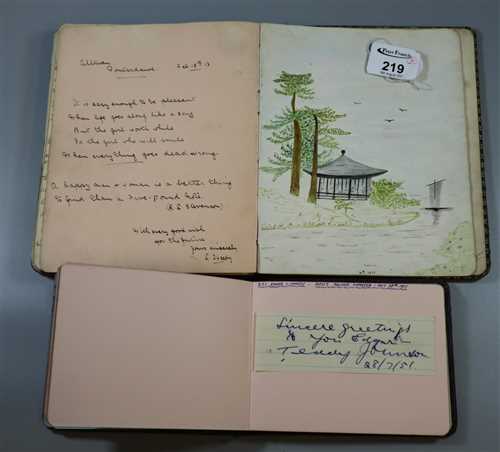 Pontardawe Feb 18th 13
It is easy enough to be pleasant
When life goes along like a song
But the girl worth while
Is the girl who will smile
When everything goes dead wrong.
A happy man or woman is a better thing
to find than a five-pound note.
(R L Stevenson)
With every good wish
for the future
Yours sincerely
Peter Francis
219
Sincere greetings
to you Edgar
Teddy Johnson
28/7/51.